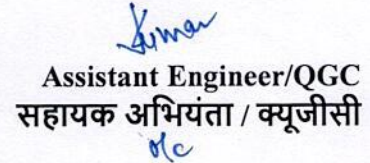 Kumar
Assistant Engineer/QGC
सहायक अभियंता / क्यूजीसी